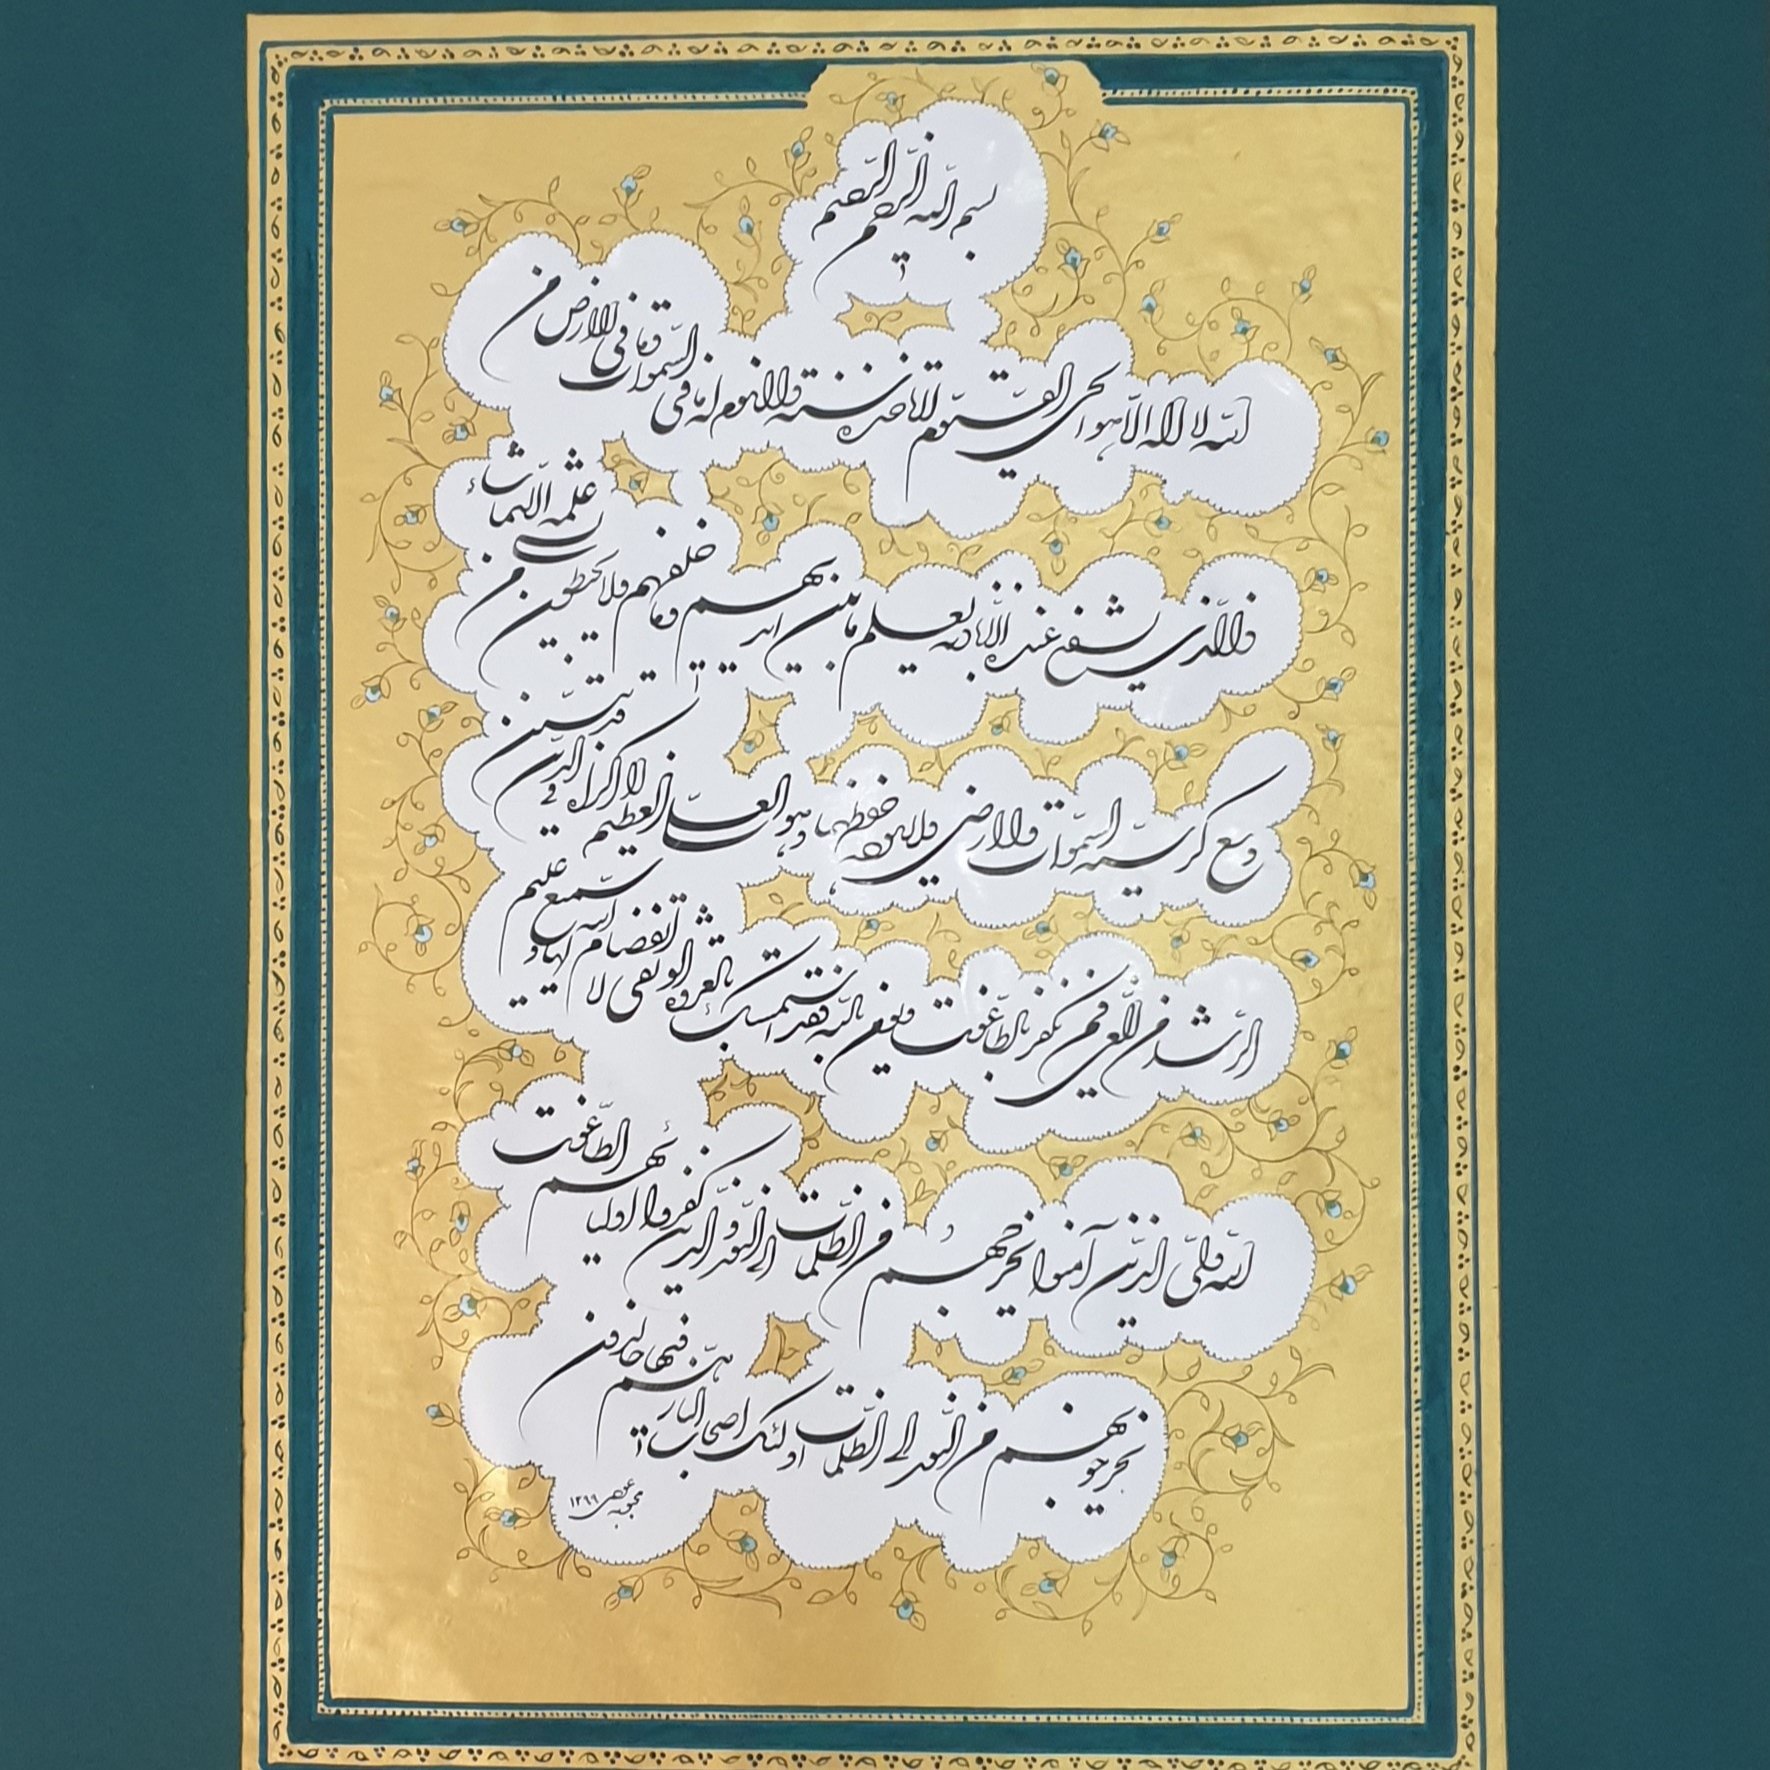 بسم الله الرحمن الرحیم
الله لا اله الا هو الحی القیوم لا تاخذه سنة و لا نوم له ما فی السموات و ما فی الارض من
ذا الذی یشفع عنده الا باذنه یعلم ما بین ایدیهم و ما خلفهم و لا یحیطون بشی من علمه الا بما شاء
وسع کرسیه السموات و الارض و لا یوده حفظهما و هو العلی العظیم لا اکراه فی الدین قد تبین
الرشد من الغی فمن یکفر بالطاغوت و یومن بالله فقد استمسک بالعروة الوثقی لا انفصام لها و الله سمیع علیم
الله ولی الذین آمنوا یخرجهم من الظلمات الی النور و الذین کفروا اولیائهم الطاغوت
یخرجونهم من النور الی الظلمات اولئک اصحاب النار هم فیها خالدون
محبوبه ۱۳۹۹